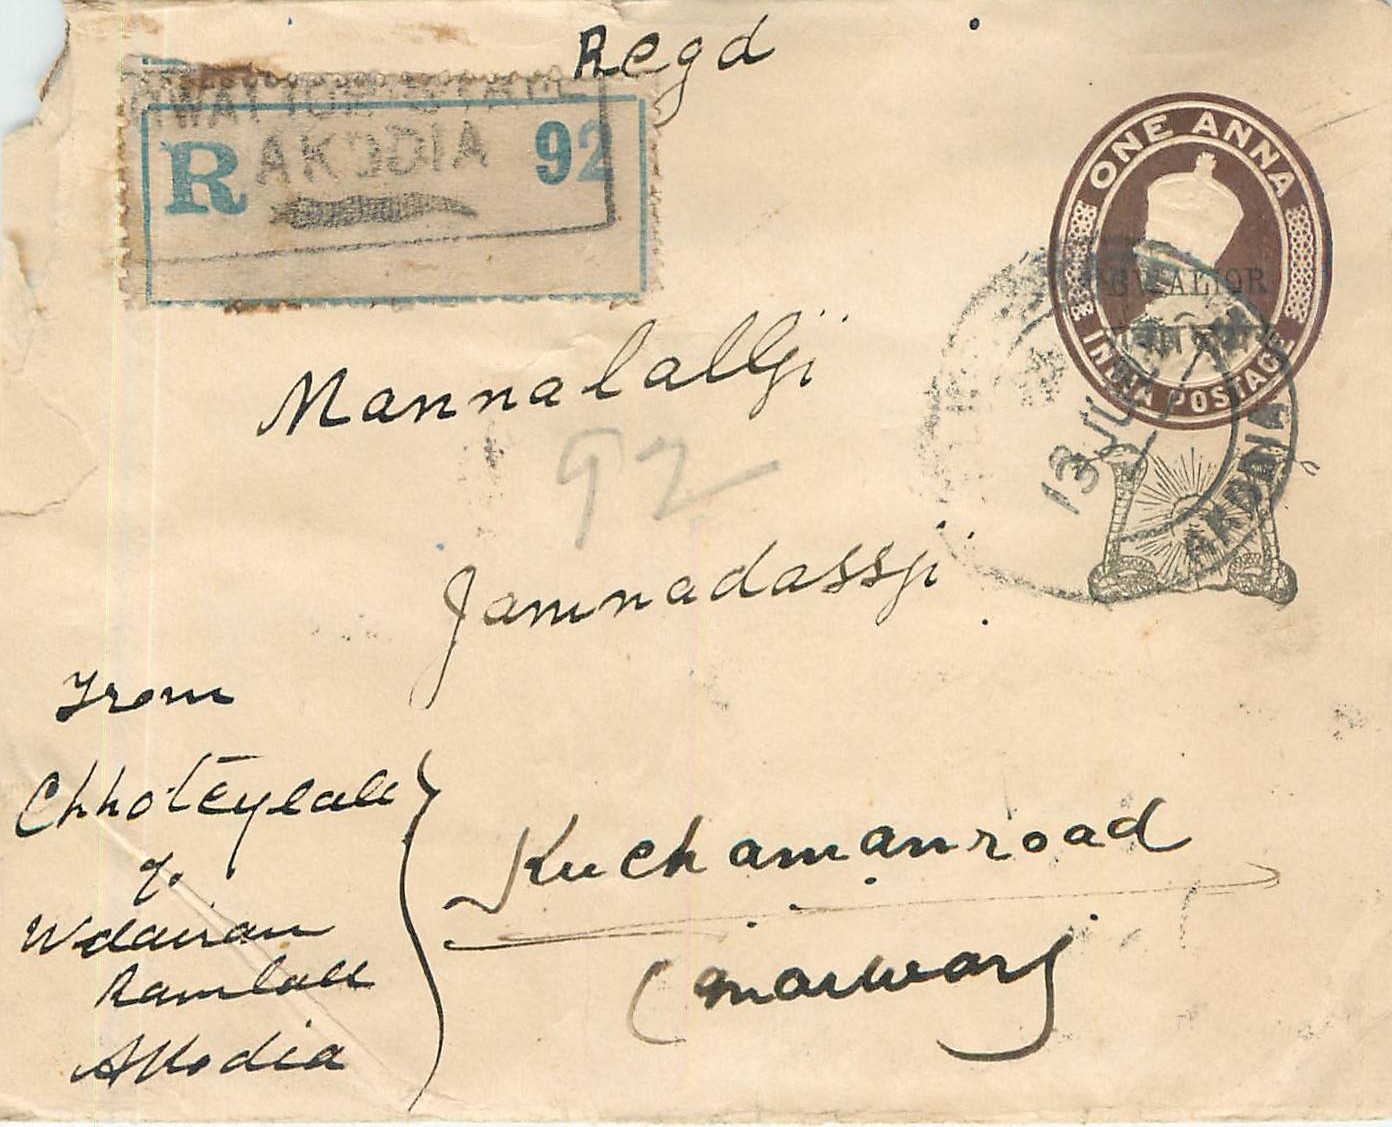 Regd
GWALIOR STATE
R AKODIA 92
ONE ANNA
GWALIOR
ग्वालियर
INDIA POSTAGE
13 JU
AKODIA
Mannalallji
92
Jamnadassji
From
Chhoteylall
Ramlall
Akodia
Kuchamanroad
(Marwar)